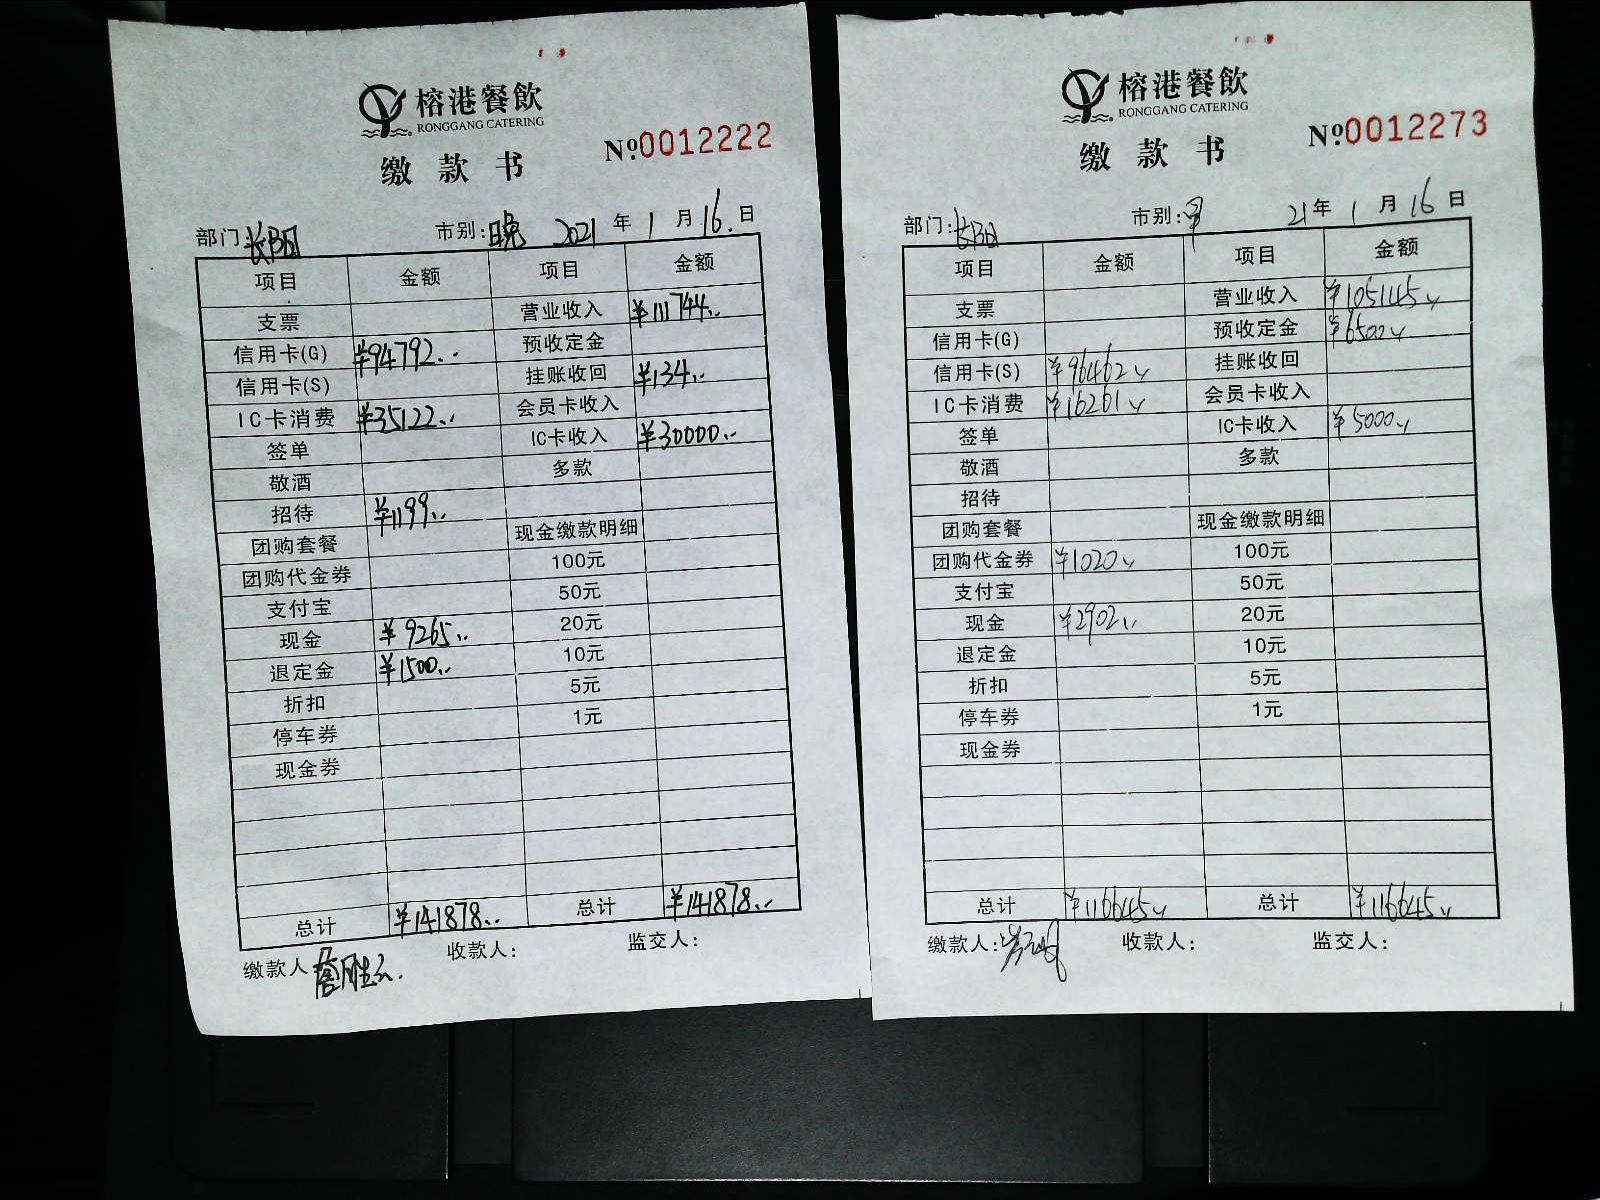 榕港餐飲
RONGGANG CATERING
缴款书
№0012222
部门:长阳 市别:晚 2021年1月16日
项目 金额 项目 金额
支票 营业收入 ¥111744..
信用卡(G) ¥94792.. 预收定金
信用卡(S) 挂账收回 ¥134..
IC卡消费 ¥35122.. 会员卡收入
签单 IC卡收入 ¥30000..
敬酒 多款
招待 ¥1199..
团购套餐 现金缴款明细
团购代金券 100元
支付宝 50元
现金 ¥9265.. 20元
退定金 ¥1500.. 10元
折扣 5元
停车券 1元
现金券
总计 ¥141878.. 总计 ¥141878..
缴款人 收款人: 监交人:
榕港餐飲
RONGGANG CATERING
缴款书
№0012273
部门:长阳 市别:早 21年1月16日
项目 金额 项目 金额
支票 营业收入 ¥105145..
信用卡(G) 预收定金 ¥6500..
信用卡(S) ¥96462.. 挂账收回
IC卡消费 ¥16261.. 会员卡收入
签单 IC卡收入 ¥5000..
敬酒 多款
招待
团购套餐 现金缴款明细
团购代金券 ¥1020.. 100元
支付宝 50元
现金 ¥2902.. 20元
退定金 10元
折扣 5元
停车券 1元
现金券
总计 ¥116645.. 总计 ¥116645..
缴款人: 收款人: 监交人: